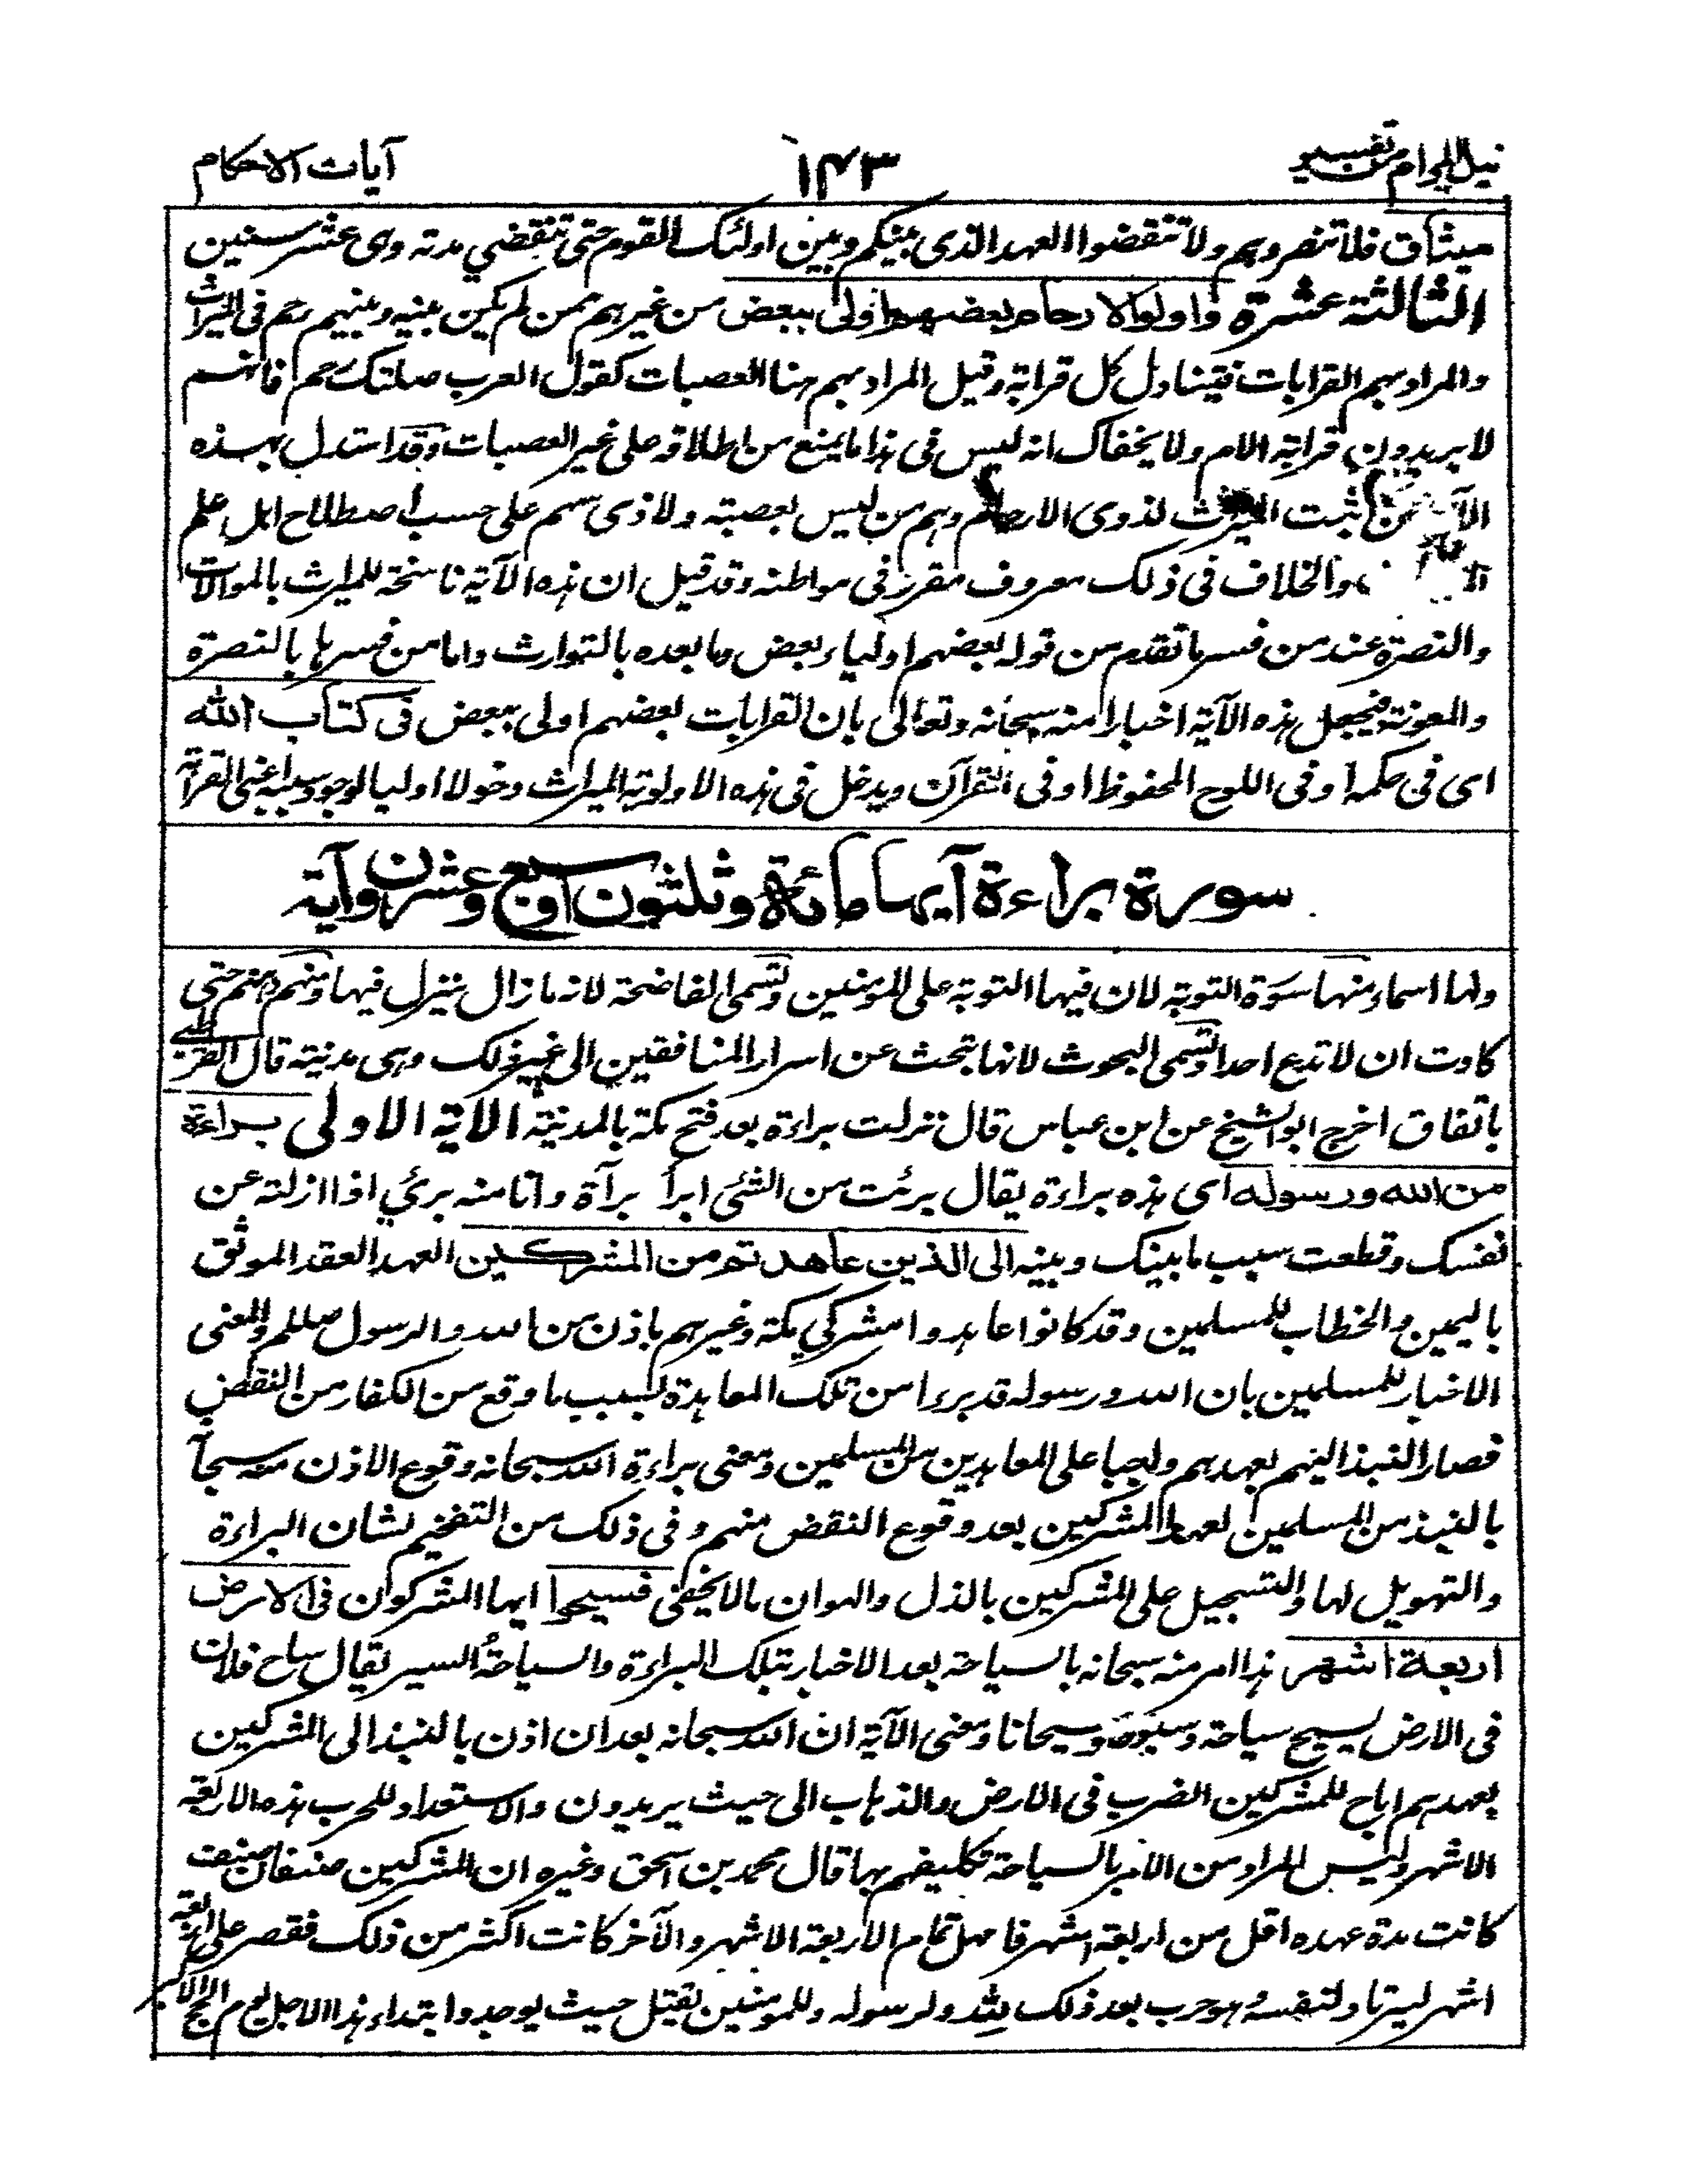 نيل المرام من تفسير
١٤٣
آيات الاحكام
ميثاق فلا تنصروهم ولا تنقضوا العهد الذى بينكم وبين اولئك القوم حتى تنقضي مدته وهى عشر سنين
الثالثة عشرة واولوا الارحام بعضهم اولى ببعض من غيرهم ممن لم يكن بينه وبينهم رحم فى الميراث
والمراد بهم القرابات فيتناول كل قرابة وقيل المراد بهم هنا العصبات كقول العرب صلتك رحم فانهم
لا يريدون قرابة الام ولا يخفاك انه ليس فى هذا ما يمنع من اطلاقه على غير العصبات وقد استدل بهذه
الآية من اثبت الميراث لذوى الارحام وهم من ليس بعصبة ولا ذى سهم على حسب اصطلاح اهل علم
والخلاف فى ذلك معروف مقرر فى مواطنه وقد قيل ان هذه الآية ناسخة للميراث بالموالات
والنصرة عند من فسر ما تقدم من قوله بعضهم اولياء بعض وما بعده بالتوارث واما من فسرها بالنصرة
والمعونة فيجعل هذه الآية اخبارا منه سبحانه وتعالى بان القرابات بعضهم اولى ببعض فى كتاب الله
اى فى حكمه او فى اللوح المحفوظ او فى القرآن ويدخل فى هذه الاولوية الميراث دخولا اوليا لوجود سببه اعنى القرابة
سورة براءة آيها مائة وثلثون او سبع وعشرون آية
ولها اسماء منها سورة التوبة لان فيها التوبة على المؤمنين وتسمى الفاضحة لانه ما زال ينزل فيها ومنهم ومنهم حتى
كادت ان لا تدع احدا وتسمى البحوث لانها تبحث عن اسرار المنافقين الى غير ذلك وهى مدنية قال القرطبى
باتفاق اخرج ابو الشيخ عن ابن عباس قال نزلت براءة بعد فتح مكة بالمدينة الآية الاولى براءة
من الله ورسوله اى هذه براءة يقال برئت من الشئ ابرأ برآة وانا منه برئ اذا ازلته عن
نفسك وقطعت سبب ما بينك وبينه الى الذين عاهدتم من المشركين العهد العقد الموثق
باليمين والخطاب للمسلمين وقد كانوا عاهدوا مشركي مكة وغيرهم باذن من الله والرسول صللم والمعنى
الاخبار للمسلمين بان الله ورسوله قد برءا من تلك المعاهدة بسبب ما وقع من الكفار من النقض
فصار النبذ اليهم بعهدهم واجبا على المعاهدين من المسلمين ومعنى براءة الله سبحانه وقوع الاذن منه سبحا
بالنبذ من المسلمين لعهد المشركين بعد وقوع النقض منهم وفى ذلك من التفخيم لشان البراءة
والتهويل لها والتسجيل على المشركين بالذل والهوان مالا يخفى فسيحوا ايها المشركون فى الارض
اربعة اشهر هذا امر منه سبحانه بالسياحة بعد الاخبار بتلك البراءة والسياحة السير يقال ساح فلان
فى الارض يسيح سياحة وسيوحا وسيحانا ومعنى الآية ان الله سبحانه بعد ان اذن بالنبذ الى المشركين
بعهدهم اباح للمشركين الضرب فى الارض والذهاب الى حيث يريدون والاستعداد للحرب هذه الاربعة
الاشهر وليس المراد من الامر بالسياحة تكليفهم بها قال محمد بن اسحق وغيره ان المشركين صنفان صنف
كانت مدة عهده اقل من اربعة اشهر فامهل تمام الاربعة الاشهر والآخر كانت اكثر من ذلك فقصر على اربعة
اشهر ليرتاد لنفسه وهو حرب بعد ذلك لله ولرسوله وللمومنين يقتل حيث يوجد وابتداء هذا الاجل يوم الحج الاكبر